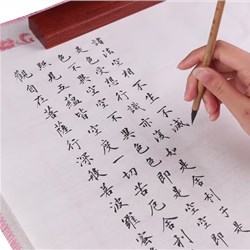 觀自在菩薩行深般若波羅蜜
照見五蘊皆空度一切苦厄舍利子
色不異空空不異色色即是空空即
是色受想行識亦復如是舍利子
諸法空相不生不滅